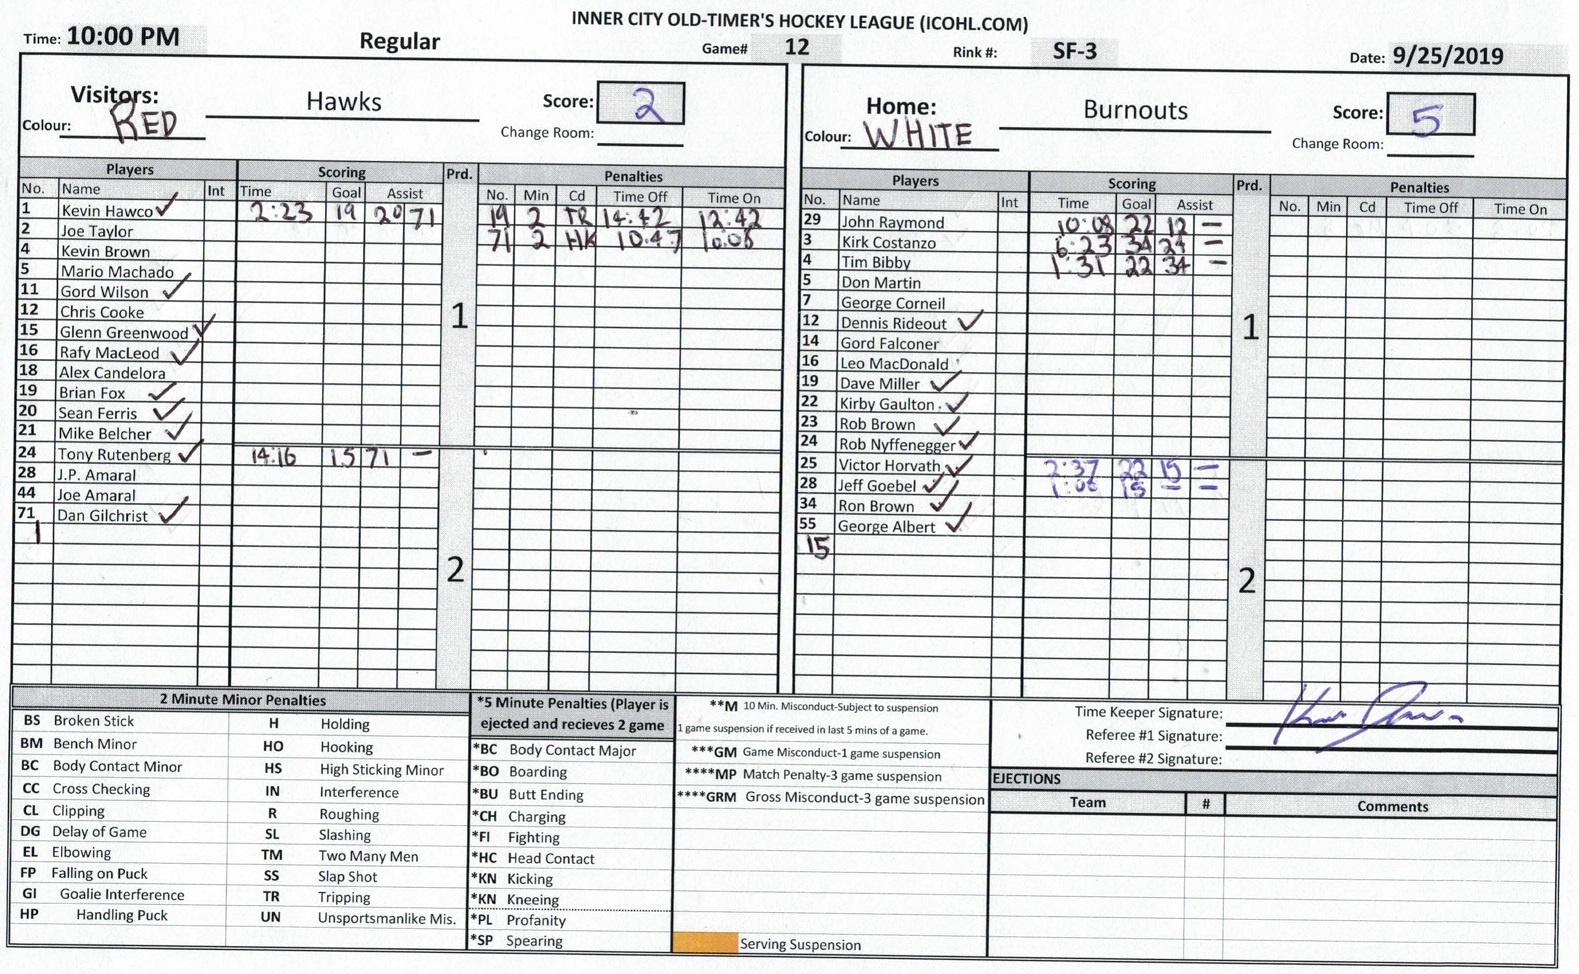 INNER CITY OLD-TIMER'S HOCKEY LEAGUE (ICOHL.COM)
Time: 10:00 PM Regular Game# 12 Rink #: SF-3 Date: 9/25/2019
Visitors: Hawks Score: 2
Colour: RED Change Room:
Home: Burnouts Score: 5
Colour: WHITE Change Room:
Players Scoring Prd. Penalties
No. Name Int Time Goal Assist No. Min Cd Time Off Time On
1 Kevin Hawco ✓ 2:23 19 20 71 19 2 TR 14:42 12:42
2 Joe Taylor 71 2 HK 10:47 10:08
4 Kevin Brown
5 Mario Machado
11 Gord Wilson ✓
12 Chris Cooke
15 Glenn Greenwood ✓
16 Rafy MacLeod ✓
18 Alex Candelora
19 Brian Fox ✓
20 Sean Ferris ✓
21 Mike Belcher ✓
1
24 Tony Rutenberg ✓ 14:16 15 71 –
28 J.P. Amaral
44 Joe Amaral
71 Dan Gilchrist ✓
1
2
Players Scoring Prd. Penalties
No. Name Int Time Goal Assist No. Min Cd Time Off Time On
29 John Raymond 10:08 22 12 –
3 Kirk Costanzo 6:23 34 24 –
4 Tim Bibby 1:31 22 34 –
5 Don Martin
7 George Corneil
12 Dennis Rideout ✓
14 Gord Falconer
16 Leo MacDonald
19 Dave Miller ✓
22 Kirby Gaulton ✓
23 Rob Brown ✓
24 Rob Nyffenegger ✓
1
25 Victor Horvath ✓ 2:37 22 15 –
28 Jeff Goebel ✓ 1:06 15 – –
34 Ron Brown ✓
55 George Albert ✓
15
2
2 Minute Minor Penalties
BS Broken Stick H Holding
BM Bench Minor HO Hooking
BC Body Contact Minor HS High Sticking Minor
CC Cross Checking IN Interference
CL Clipping R Roughing
DG Delay of Game SL Slashing
EL Elbowing TM Two Many Men
FP Falling on Puck SS Slap Shot
GI Goalie Interference TR Tripping
HP Handling Puck UN Unsportsmanlike Mis.
*5 Minute Penalties (Player is
ejected and recieves 2 game
*BC Body Contact Major
*BO Boarding
*BU Butt Ending
*CH Charging
*FI Fighting
*HC Head Contact
*KN Kicking
*KN Kneeing
*PL Profanity
*SP Spearing
**M 10 Min. Misconduct-Subject to suspension
1 game suspension if received in last 5 mins of a game.
***GM Game Misconduct-1 game suspension
****MP Match Penalty-3 game suspension
****GRM Gross Misconduct-3 game suspension
Serving Suspension
Time Keeper Signature:
Referee #1 Signature:
Referee #2 Signature:
EJECTIONS
Team # Comments